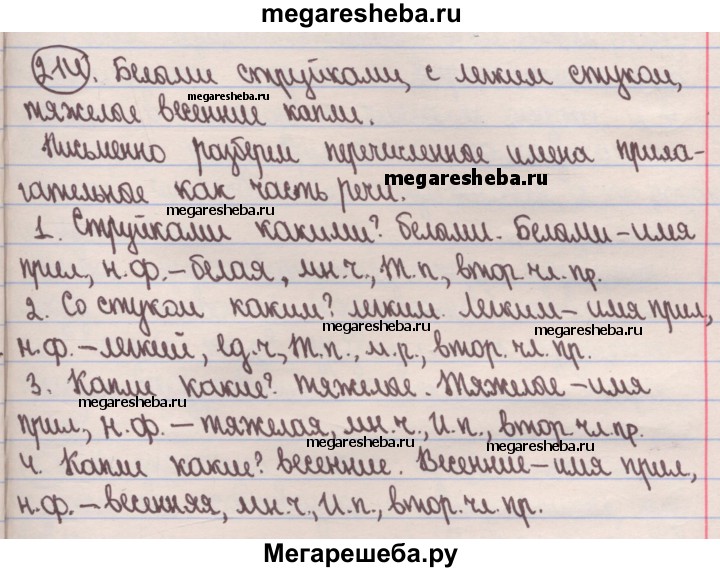 megaresheba.ru
214. Белыми струйками, с легким стуком,
megaresheba.ru
тяжелые весенние капли.
Письменно разберем перечисленные имена прила-
megaresheba.ru
гательные как часть речи.
megaresheba.ru
1. Струйками какими? белыми. Белыми – имя
прил, н.ф. – белая, мн.ч., Т.п., втор.чл.пр.
2. Со стуком каким? легким. Легким – имя прил,
megaresheba.ru
megaresheba.ru
н.ф. – легкий, ед.ч, Т.п., м.р., втор.чл.пр.
3. Капли какие? тяжелые. Тяжелые – имя
megaresheba.ru
прил, н.ф. – тяжелая, мн.ч., И.п., втор чл.пр.
megaresheba.ru
4. Капли какие? весенние. Весенние – имя прил,
н.ф. – весенняя, мн.ч., И.п., втор.чл.пр.
Мегарешеба.ру